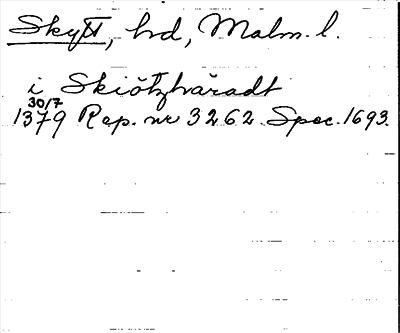 Skytt, hd, Malm. l.
i Skiötzhäradt
30/7
1379 Rep. nr 3262. Spec. 1693.